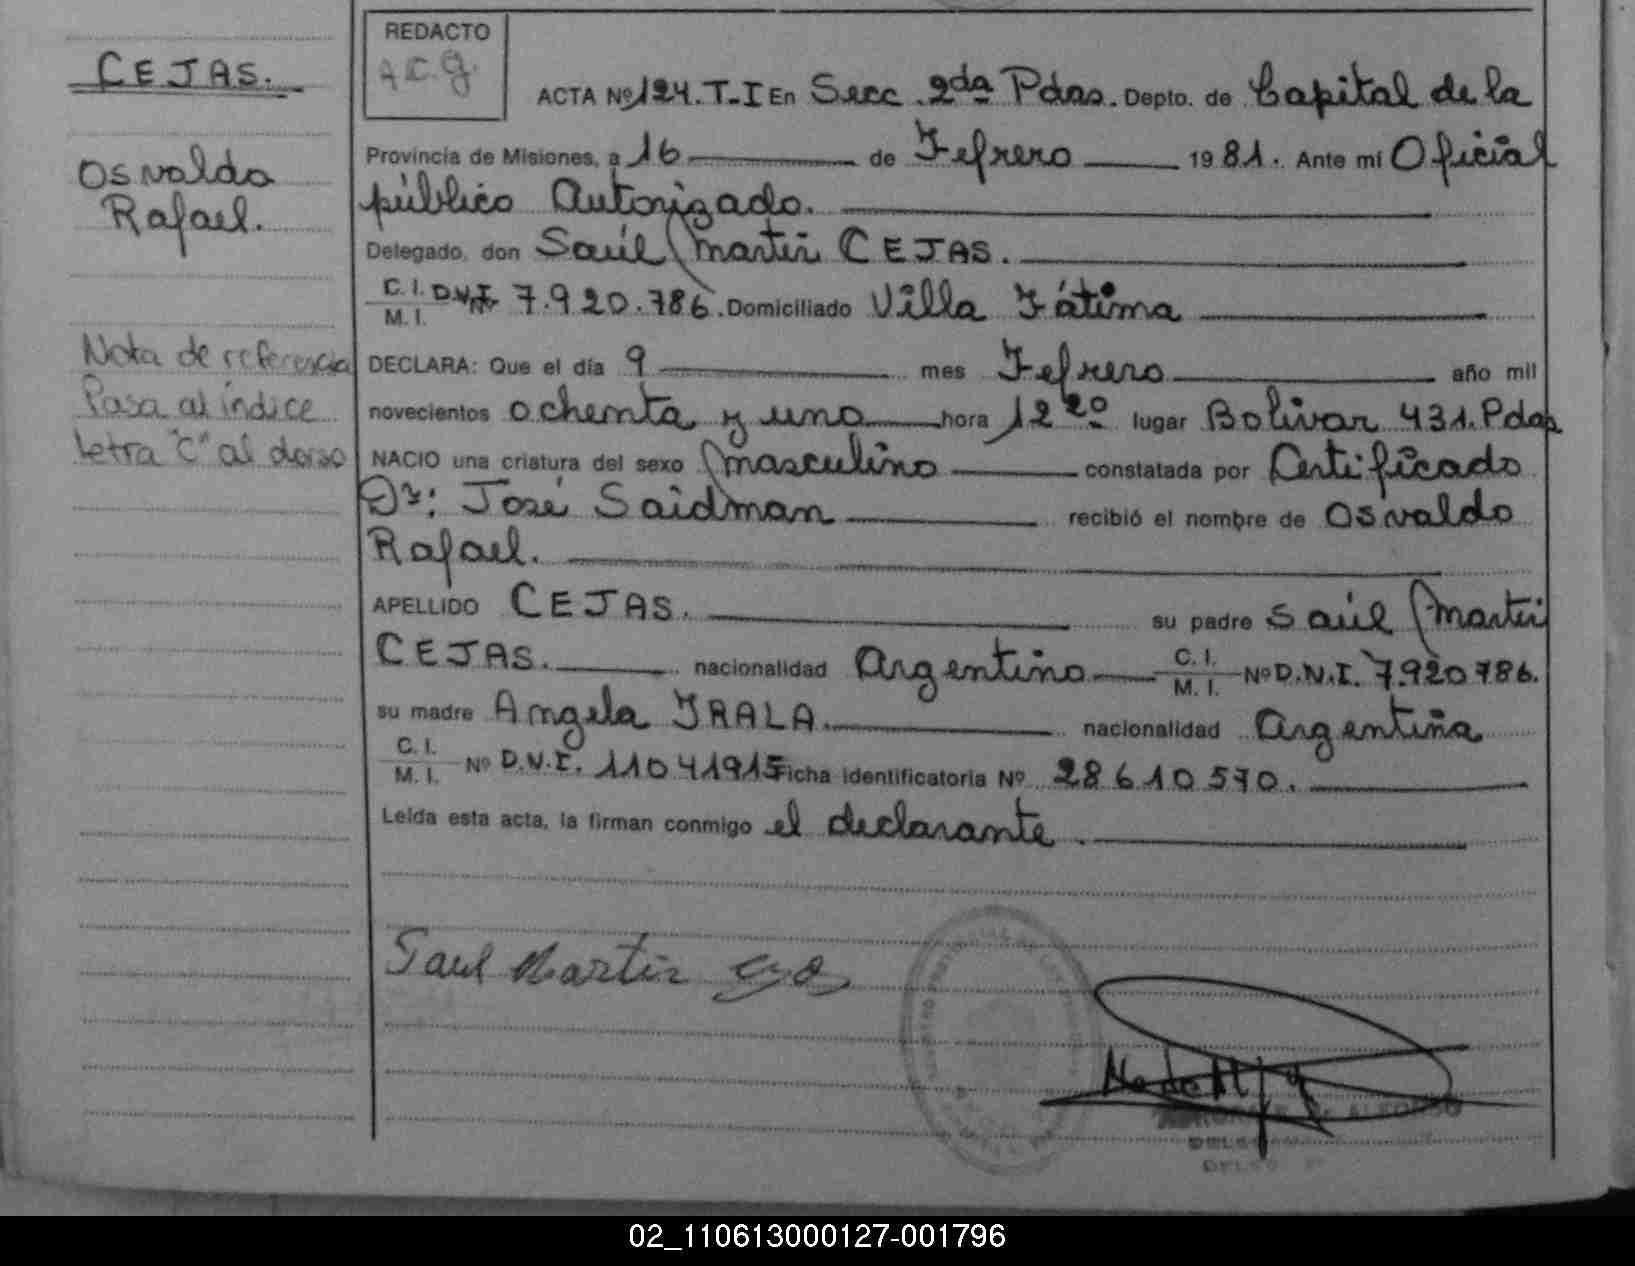 CEJAS.
Osvaldo
Rafael.
Nota de referencia
Pasa al índice
letra "C" al dorso
REDACTO
A.C.G.
ACTA Nº 124. T-I En Secc. 2da Pdas. Depto. de Capital de la
Provincia de Misiones, a 16 de Febrero 1981. Ante mi Oficial
público Autorizado.
Delegado, don Saúl Martin CEJAS.
C. I. D.N.I. 7.920.786. Domiciliado Villa Fátima
M. I.
DECLARA: Que el día 9 mes Febrero año mil
novecientos ochenta y uno hora 12 20 lugar Bolivar 431. Pdas
NACIO una criatura del sexo masculino constatada por Certificado
Dr: José Saidman recibió el nombre de Osvaldo
Rafael.
APELLIDO CEJAS. su padre Saúl Martin
CEJAS. nacionalidad Argentino C. I. Nº D.N.I. 7.920786.
M. I.
su madre Angela IRALA. nacionalidad Argentina
C. I. Nº D.N.I. 11041915 Ficha identificatoria Nº 28610570.
M. I.
Leída esta acta, la firman conmigo el declarante.
Saul Martin
02_110613000127-001796